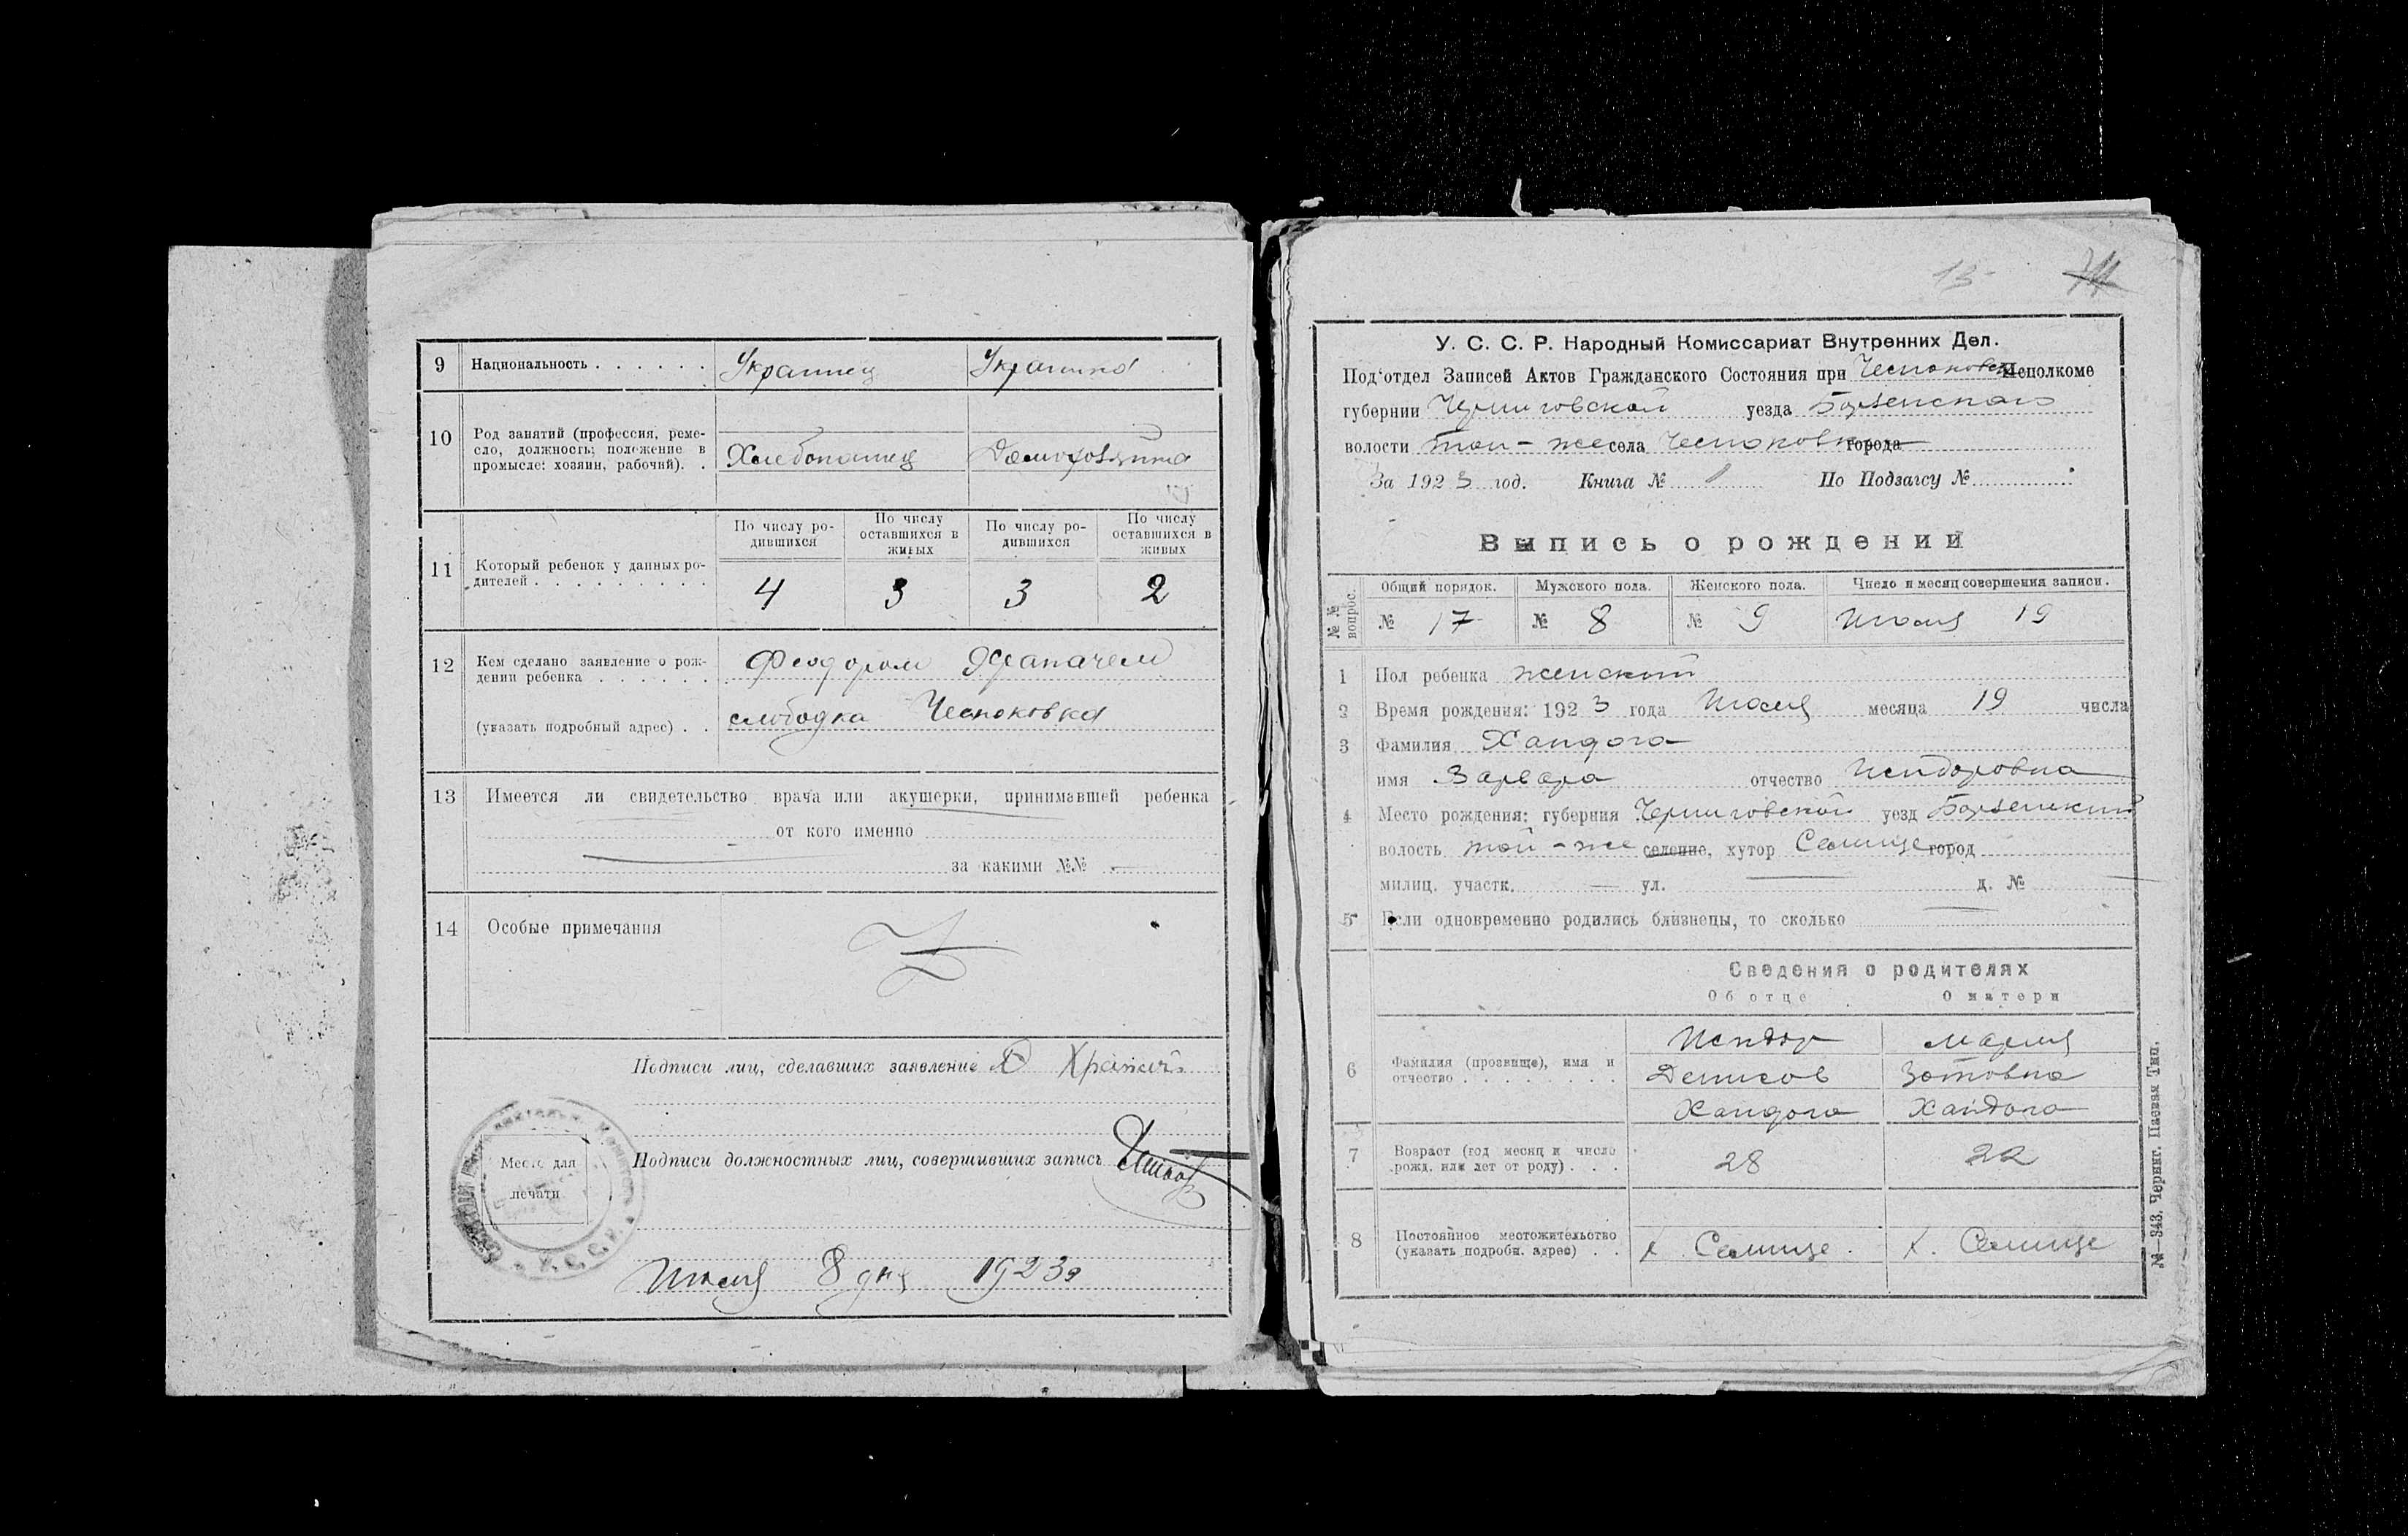 9 Национальность . . . . . . Украинец Украинка
10 Род занятий (профессия, реме-
сло, должность; положение в
промысле: хозяин, рабочий). . Хлебопашец Домохозяйка
11 Который ребенок у данных ро-
дителей . . . . . . . . .
По числу ро-
дившихся
По числу
оставшихся в
живых
По числу ро-
дившихся
По числу
оставшихся в
живых
4 3 3 2
12 Кем сделано заявление о рож-
дении ребенка . . . . . . Феодором Храпачем
(указать подробный адрес) . . слободка Чесноковка
13 Имеется ли свидетельство врача или акушерки, принимавшей ребенка
от кого именно
за какими №№ —
14 Особые примечания
Подписи лиц, сделавших заявление Ф Храпач
Место для
печати
Подписи должностных лиц, совершивших запись
У. С. С. Р.
Июля 8 дня 1923 г
13
У. С. С. Р. Народный Комиссариат Внутренних Дел.
Под'отдел Записей Актов Гражданского Состояния при Исполкоме
губернии Черниговской уезда Борзенского
волости той-же села Чесноковки города
За 1923 год. Книга № 1 По Подзагсу №
Выпись о рождении
№№ вопрос.
Общий порядок. Мужского пола. Женского пола. Число и месяц совершения записи.
№ 17 № 8 № 9 Июля 19
1 Пол ребенка женский
2 Время рождения: 1923 года Июля месяца 19 числа
3 Фамилия Хандога
имя Варвара отчество Исидоровна
4 Место рождения: губерния Черниговской уезд Борзенский
волость той-же селение, хутор Селище город
милиц. участк. — ул. — д. № —
5 Если одновременно родились близнецы, то сколько —
Сведения о родителях
Об отце О матери
6 Фамилия (прозвище), имя и
отчество . . . . . . . .
Исидор Мария
Денисов Зотовна
Хандога Хандога
7 Возраст (год месяц и число
рожд. или лет от роду) . . . 28 22
8 Постоянное местожительство
(указать подробн. адрес) . . х. Селище. х. Селище
№—343. Черниг. Паевая Тип.